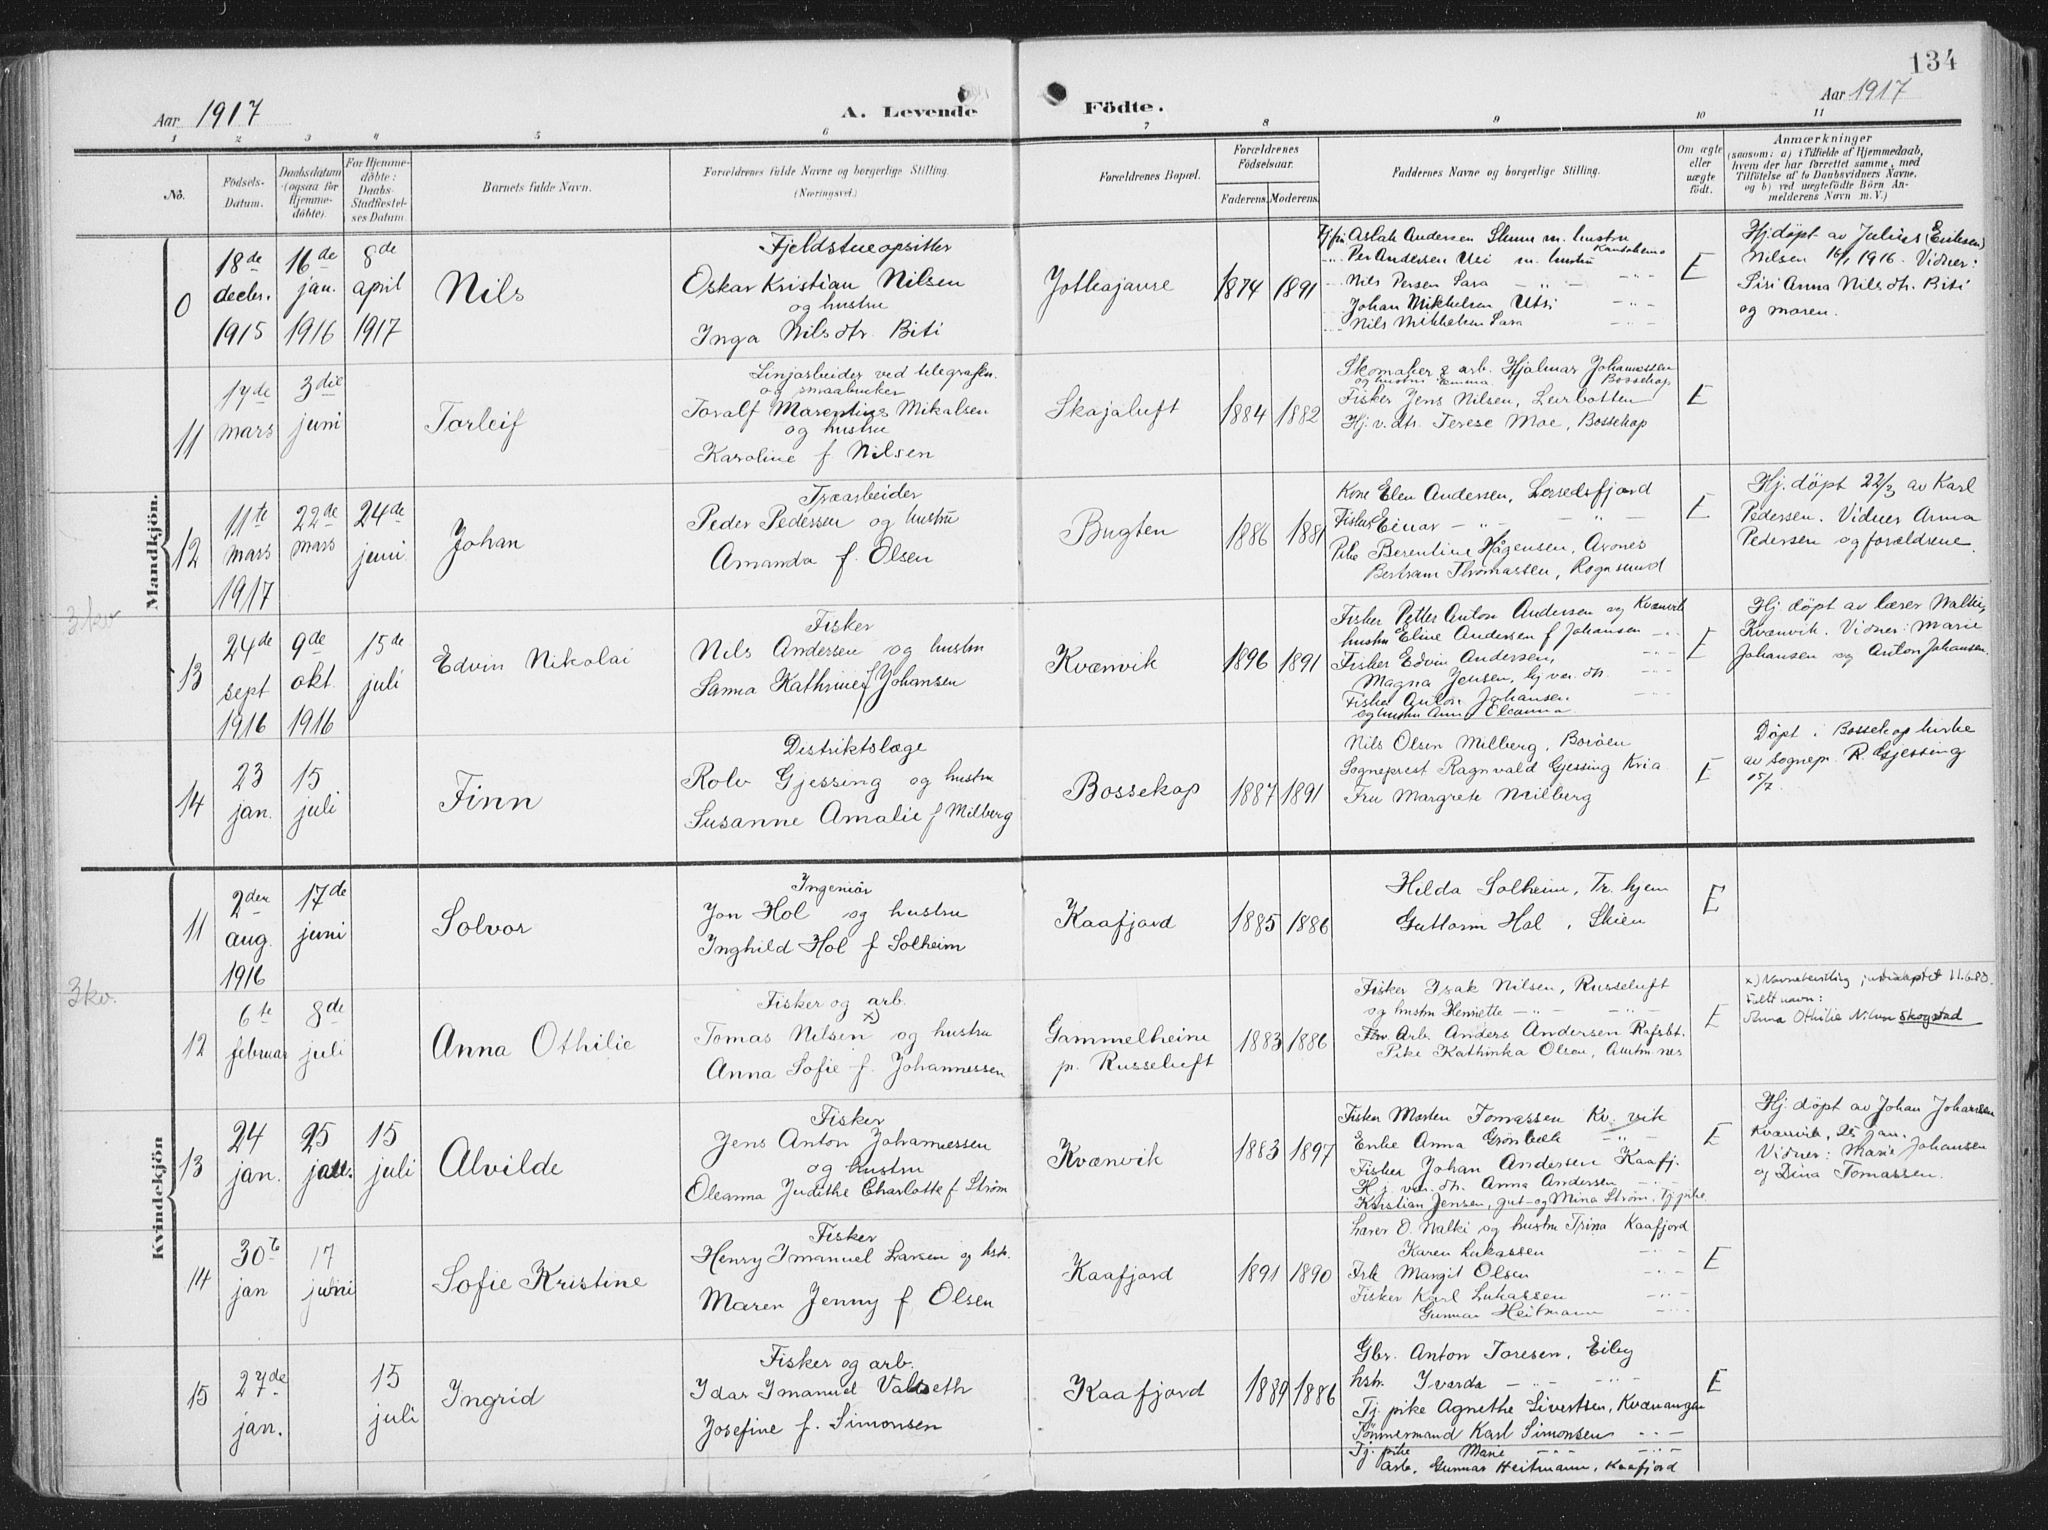 134
Aar 1917
A. Levende Födte.
Aar 1917
1 2 3 4 5 6 7 8 9 10 11
No.
Födsels-Datum.
Daabsdatum (ogsaa for Hjemme-döbte).
For Hjemme-döbte: Daabs-Stadfæstel-ses Datum
Barnets fulde Navn.
Forældrenes fulde Navne og borgerlige Stilling.
(Næringsvei.)
Forældrenes Bopæl.
Forældrenes Födselsaar.
Faderens. Moderens.
Faddernes Navne og borgerlige Stilling.
Om ægte eller uægte födt.
Anmærkninger
(saasom: a) i Tilfælde af Hjemmedaab,
hvem der har forrettet samme, med
Tilföielse af to Daabsvidners Navne,
og b) ved uegtefödte Börn An-
melderens Navn m. V.)
Mandkjön.
0
18de decbr. 1915
16de jan. 1916
8de april 1917
Nils
Fjeldstueopsitter
Oskar Kristian Nilsen
og hustru
Inga Nilsdtr. Biti
Jotkajaure
1874 1891
Aslak Andersen m. hustru
Per Andersen Utsi m. hustru
Nils Persen Sara - " -
Johan Mikkelsen Utsi - " -
Nils Mikkelsen Sara - " -
E
Hj. döpt av Julius (Eriksen)
Nilsen 16/1 1916. Vidner:
Siri Anna Nilsdtr. Biti
og moren.
11
17de mars
3die juni
Torleif
Linjearbeider ved telegrafen
og smaabruker
Toralf Marentius Mikalsen
og hustru
Karoline f Nilsen
Skajaluft
1884 1882
Skomaker & arb. Hjalmar Johannessen
og hustru Emma. Bossekop
Fisker Jens Nilsen, Lerbotten
Hj. v. dtr. Terese Moe, Bossekop
E
12
11te mars 1917
22de mars
24de juni
Johan
Træarbeider
Peder Pedersen og hustru
Amanda f. Olsen
Bugten
1886 1881
Kone Elen Andersen, Lerredsfjord
Fisker Einar - " - - " -
Pike Berentine Hågensen, Arones
Bertram Thomassen, Rognsund
E
Hj. döpt 22/3 av Karl
Pedersen. Vidner Anna
Pedersen og forældrene.
3 kv
13
24de sept 1916
9de okt. 1916
15de juli
Edvin Nikolai
Fisker
Nils Andersen og hustru
Sanna Kathrine f Johansen
Kvænvik
1896 1891
Fisker Petter Anton Andersen og Kvænvik
hustru Eline Andersen f Johansen - " -
Fisker Edvin Andersen, - " -
Magna Jensen, hj. vær. dtr. - " -
Fisker Anton Johansen - " -
og hustru Anne Oleanna
E
Hj. döpt av lærer Nalki,
Kvænvik. Vidner: Marie
Johansen og Anton Johansen.
14
23 jan.
15 juli
Finn
Distriktslæge
Rolv Gjessing og hustru
Susanne Amalie f Milberg
Bossekop
1887 1891
Nils Olsen Milberg, Boröen
Sogneprest Ragnvald Gjessing Kria
Fru Margrete Milberg
E
Döpt i Bossekop kirke
av sognepr. R. Gjessing
15/7.
Kvindekjön
11
2den aug. 1916
17de juni
Solvor
Ingeniör
Jon Hol og hustru
Inghild Hol f Solheim
Kaafjord
1885 1886
Hilda Solheim, Tr.hjem
Guttorm Hol, Skien
E
3 kv.
12
6te februar
8de juli
Anna Othilie
Fisker og arb.
x)
Tomas Nilsen og hustru
Anna Sofie f. Johannessen
Gammelheine
p. Russeluft
1883 1886
Fisker Isak Nilsen, Russeluft
og hustru Henriette - " - - " -
Arb. Anders Andersen Rafsbt.
Pike Kathinka Olsen,
E
x) Navnebevilling 11.6.80.
Fullt navn:
Anna Othilie Nilsen Skogstad
13
24 jan.
25 jan.
15 juli
Alvilde
Fisker
Jens Anton Johannessen
og hustru
Oleanna Judithe Charlotte f Ström
Kvænvik
1883 1897
Fisker Morten Tomassen Kv. vik
Enke Anna Grönbæk - " -
Fisker Johan Andersen Kaafj.
Hj. vær. dtr. Anna Andersen - " -
Kristian Jensen, gut - og Mina Ström, tj. pike
E
Hj. döpt av Johan Johansen
Kvænvik, 25 jan.
Vidner: Marie Johansen
og Dina Tomassen.
14
30te jan
17 juni
Sofie Kristine
Fisker
Henry Imanuel Larsen og hstr.
Maren Jenny f Olsen
Kaafjord
1891 1890
Lærer O. Nalki og hustru Trina Kaafjord
Karen Lukassen - " -
Frk Margit Olsen - " -
Fisker Karl Lukassen - " -
Gunnar Heitmann - " -
E
15
27de jan.
15 juli
Ingrid
Fisker og arb.
Idar Imanuel Valseth
Josefine f. Simonsen
Kaafjord
1889 1886
Gbr. Anton Toresen, Eiby
hstr. Ivarda - " - - " -
Tj. pike Agnethe Sivertsen, Kvænangen
Tömmermand Karl Simonsen - " -
Tj. pike Marie - " - - " -
Arb. Gunnar Heitmann, Kaafjord
E